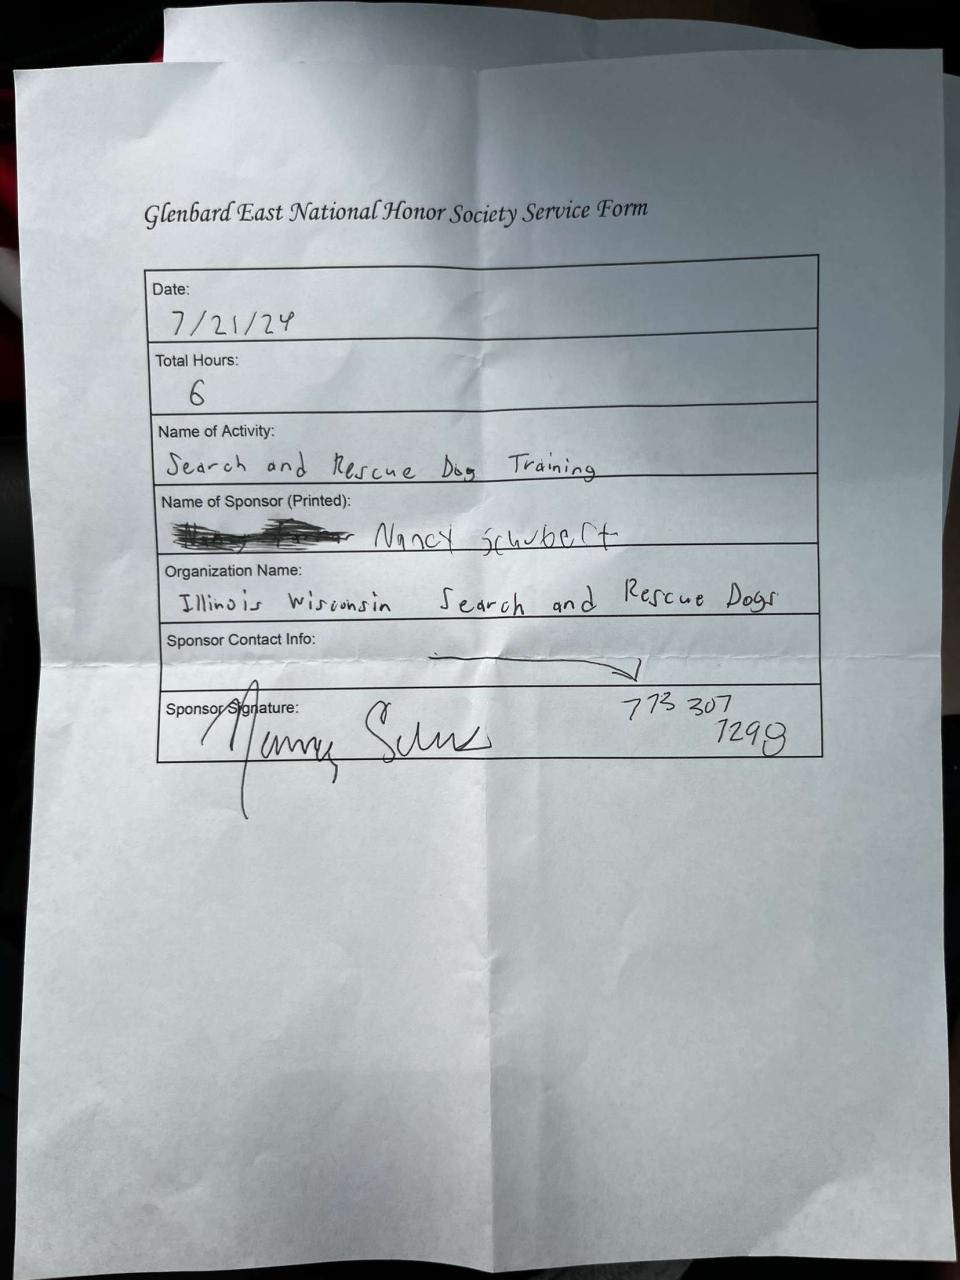 Glenbard East National Honor Society Service Form
Date:
7/21/24
Total Hours:
6
Name of Activity:
Search and Rescue Dog Training
Name of Sponsor (Printed):
Nancy Schubert
Organization Name:
Illinois Wisconsin Search and Rescue Dogs
Sponsor Contact Info:
Sponsor Signature:
773 307
7298